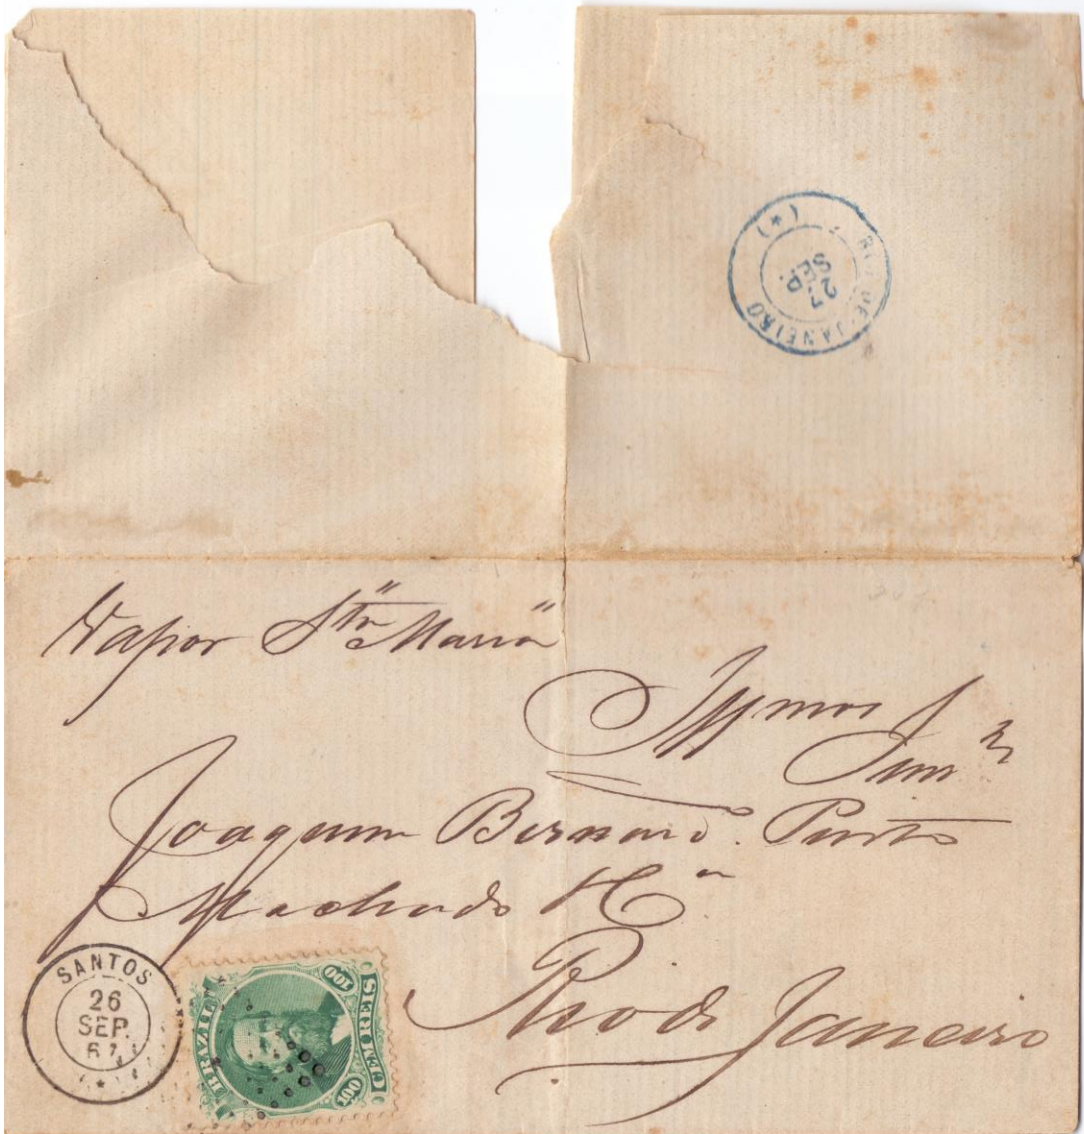 (*) RIO DE JANEIRO
27
SEP.
Vapor "Sta Maria"
Illmos Snrs
Joaquim Bernardo. Pinto
Machado & Ca
Rio de Janeiro
SANTOS
26
SEP.
67
BRAZIL
100
CEM REIS
100